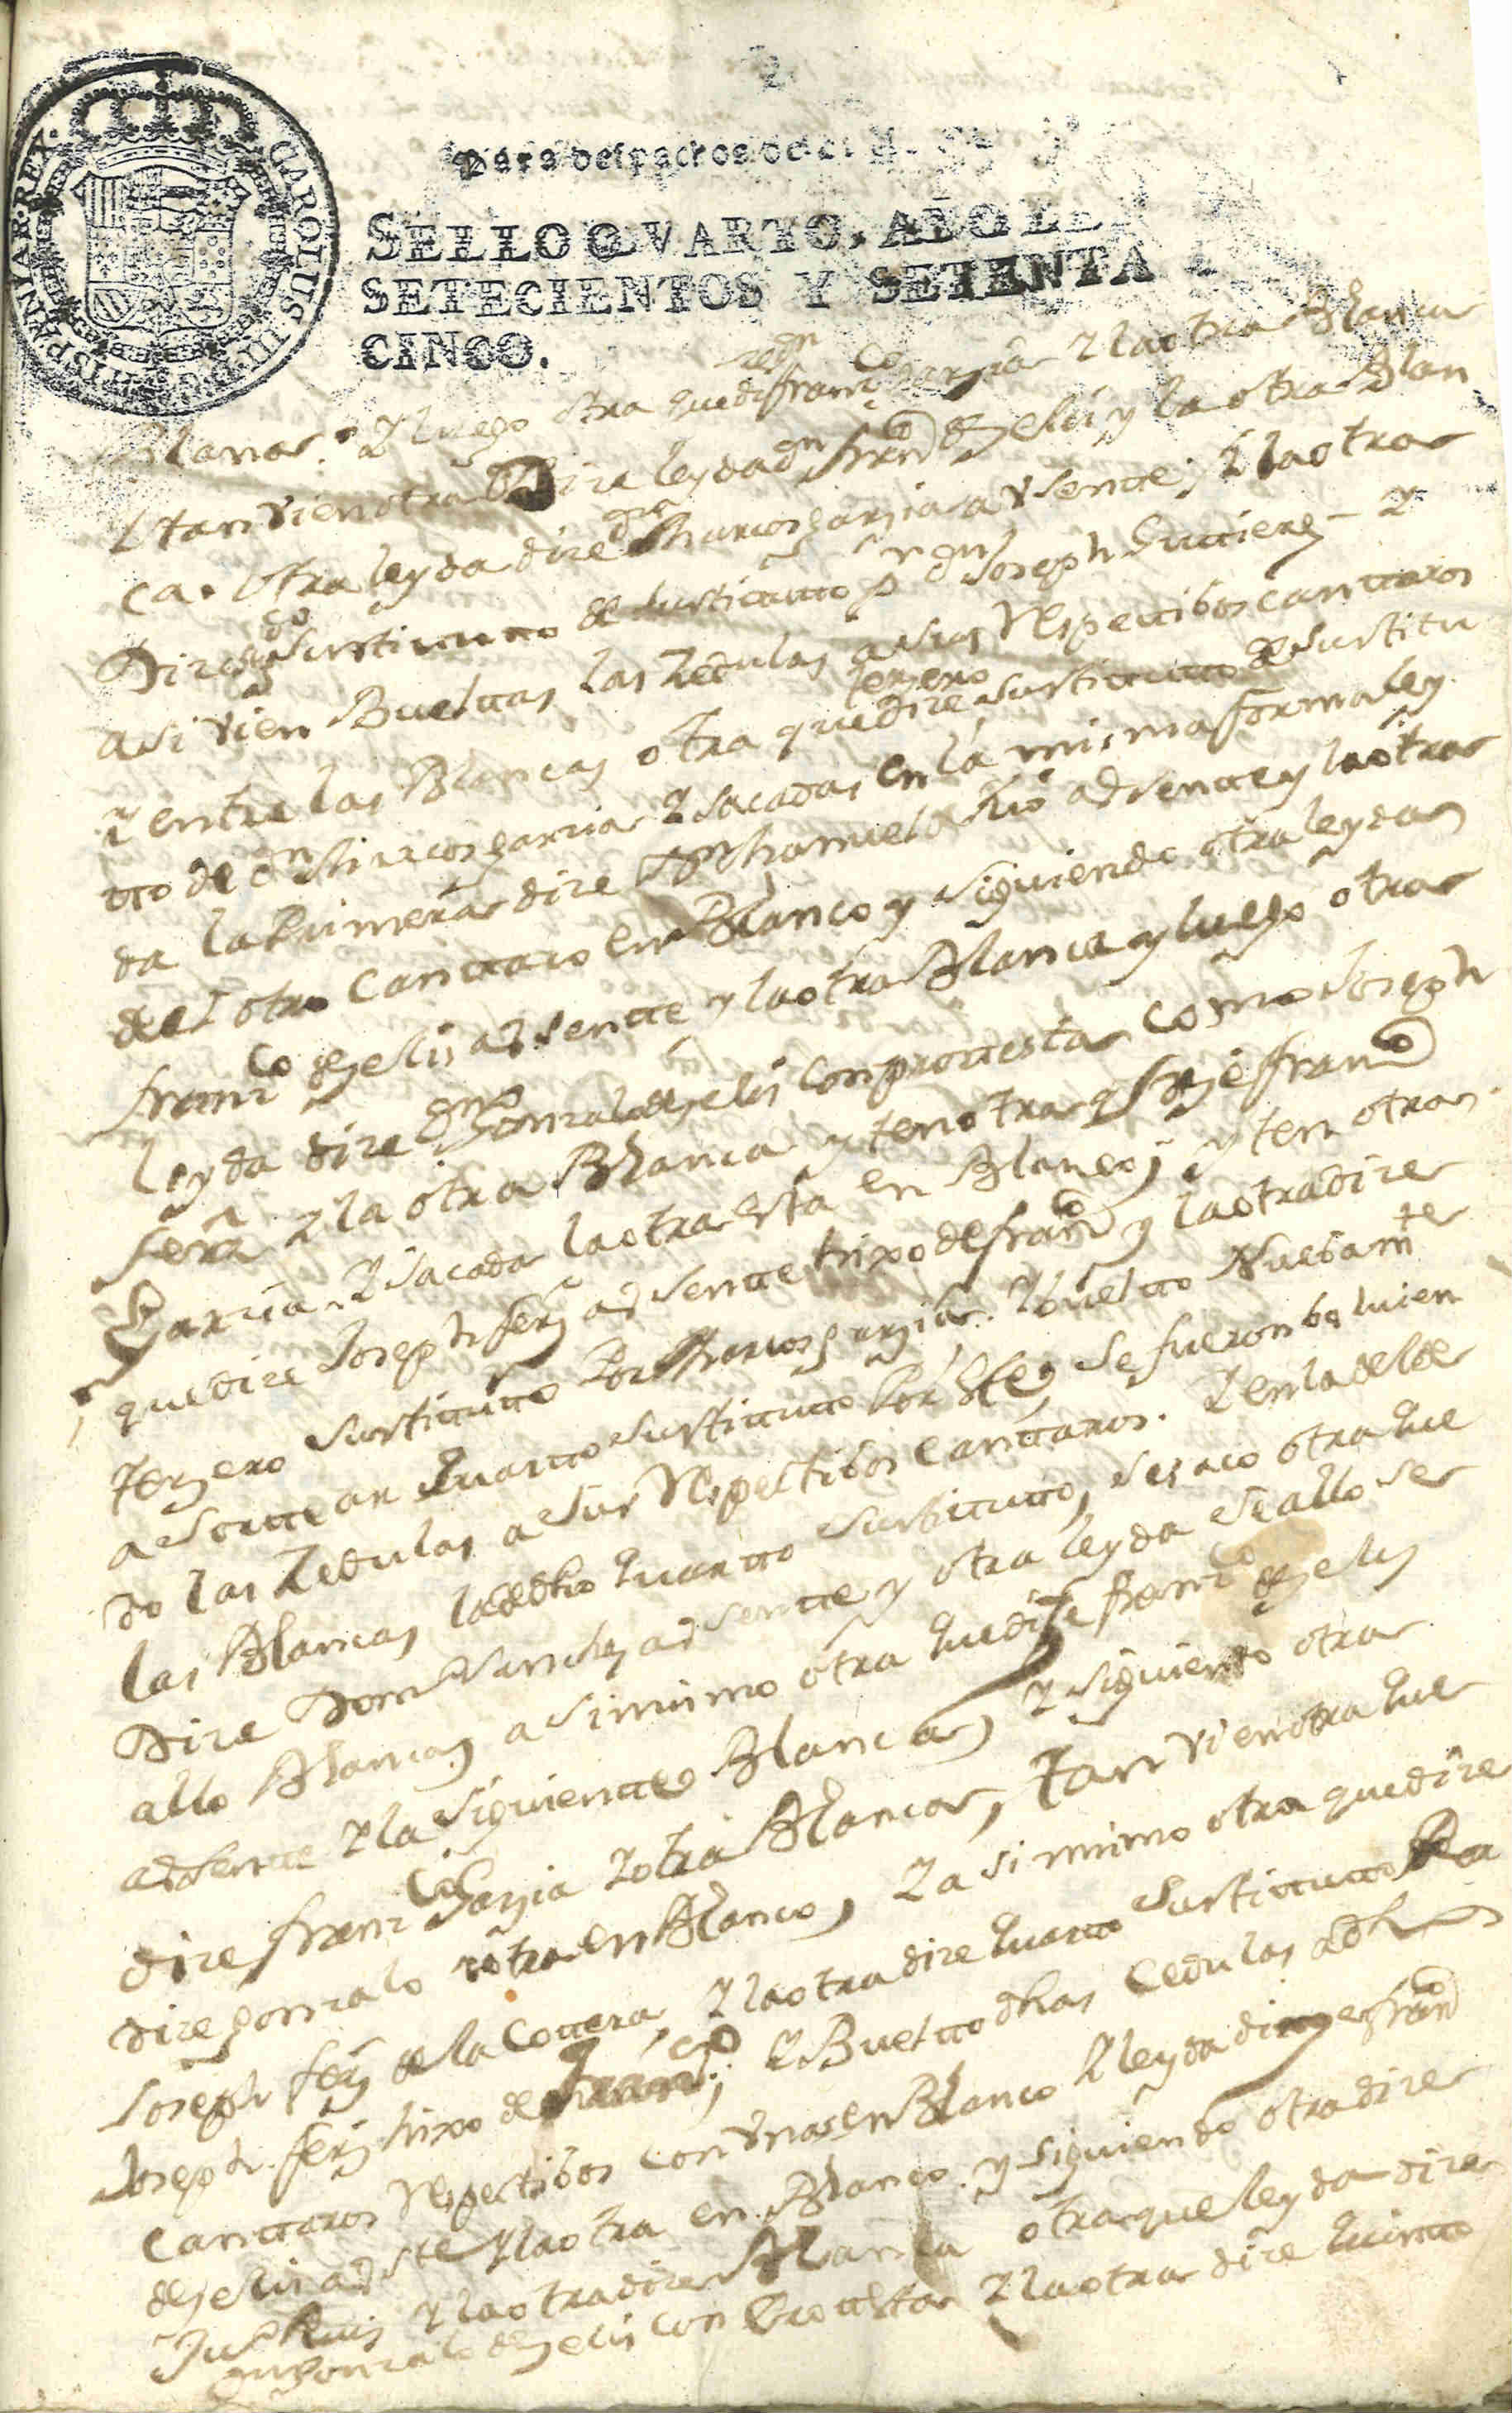 2
CAROLUS III D.G. HISPANIAR. REX.
Para despachos de
SELLO QVARTO, AÑO DE
SETECIENTOS Y SETENTA
CINCO.
Blanca. Y luego otra que dize Franco Garzia Y la otra Blanca
Y tanvien otra Dize leyda dn Franco de Zelis y la otra Blan
ca. Otra leyda dize Marcos garzia avsente; Y la otra
Dize Sustitutto de Sustitutto pr dn Joseph Gutierez - Y
asi vien Bueltas las Zedulas a sus Respectibos canttaros
Y entre las Blancas otra que dize terzero sustitutto de sustitu
tto de dn Marcos garcia Y sacadas en la misma forma ley
da la Primera dize dn Manuel de Rio adsente y la otra
del otro canttaro en Blanco y siguiendo otra leyda
Franco de Zelis adsentte y la otra Blanca y luego otra
leyda dize Gonzalo de Zelis con protesta como Joseph
Ferz Y la otra Blanca y ten otra q dize Franco
Garzia Y sacada la otra esta en Blanco; y ten otra
que dize Joseph ferz adsentte hixo de Franco y la otra dize
terzero sustitutto Por Marcos garzia. Y buelto Nuebamte
a sortear quarto sustitutto Por Este, se fueron bolvien
do las Zedulas a sus Respectibos canttaros. Y en la del de
las Blancas la de dho quartto sustitutto, se saco otra que
Dize Domo Sanchez adsentte y otra leyda se allo ser
allo Blanca asimismo otra que dize Franco de Zelis
adsente Y la siguientte Blanca Y siguiendo otra
dize Franco Garzia Y otra Blanca, tanvien otra que
dize gonzalo Y otra en Blanco, Y asi mismo otra que dize
Joseph ferz de la Cottera, Y la otra dize quarto sustitutto Pa
Joseph ferz hixo de Franco; Y Buelto dhas Cedulas a dhos
canttaros Respectibos con unas en Blanco Y leyda dize Franco
de Zelis adste Y la otra en Blanco y siguiendo otra dize
Jul Ruiz Y la otra dize Blanca otra que leyda dize
Gonzalo de Zelis con Protesta Y la otra dize quinto